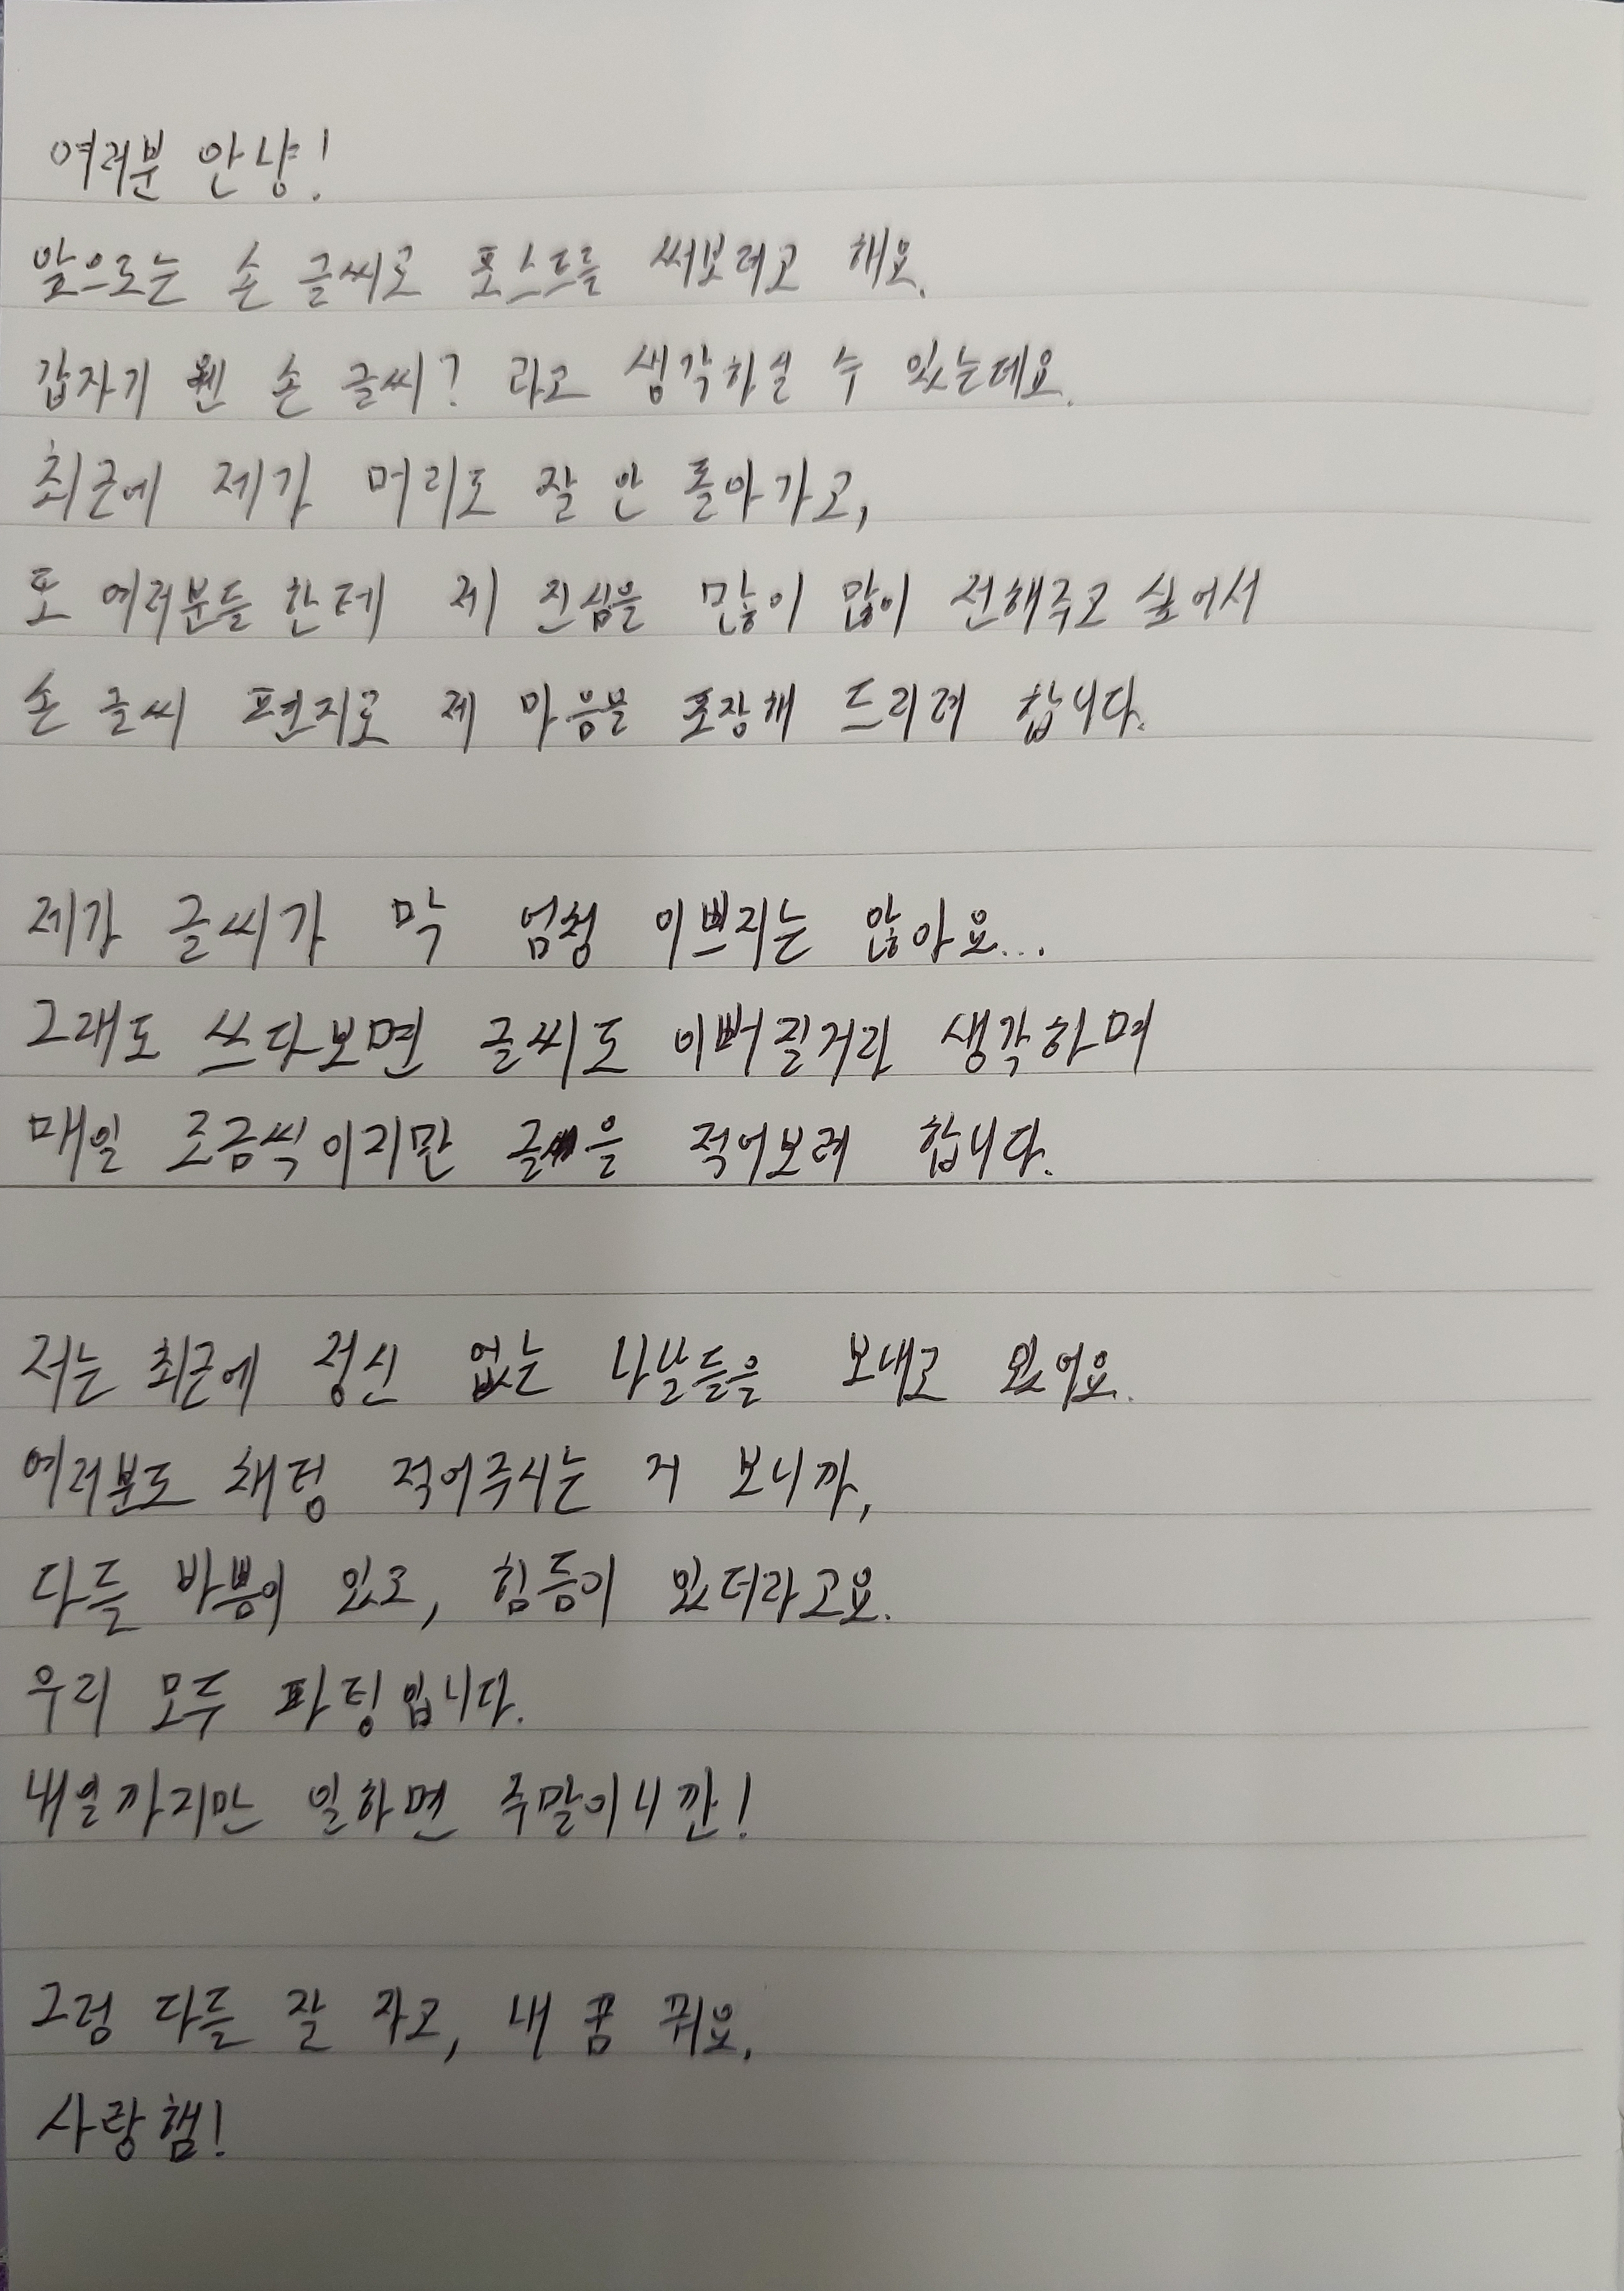 여러분 안냥!
앞으로는 손 글씨로 포스트를 써보려고 해요.
갑자기 웬 손 글씨? 라고 생각하실 수 있는데요.
최근에 제가 머리도 잘 안 돌아가고,
또 여러분들 한테 제 진심을 많이 많이 전해주고 싶어서
손 글씨 편지로 제 마음을 포장해 드리려 합니다.
제가 글씨가 막 엄청 이쁘지는 않아요...
그래도 쓰다보면 글씨도 이뻐질거라 생각하며
매일 조금씩이지만 글을 적어보려 합니다.
저는 최근에 정신 없는 나날들을 보내고 있어요.
여러분도 채팅 적어주시는 거 보니까,
다들 바쁨이 있고, 힘듬이 있더라고요.
우리 모두 파팅입니다.
내일까지만 일하면 주말이니깐!
그럼 다들 잘 자고, 내 꿈 꿔요.
사랑햄!